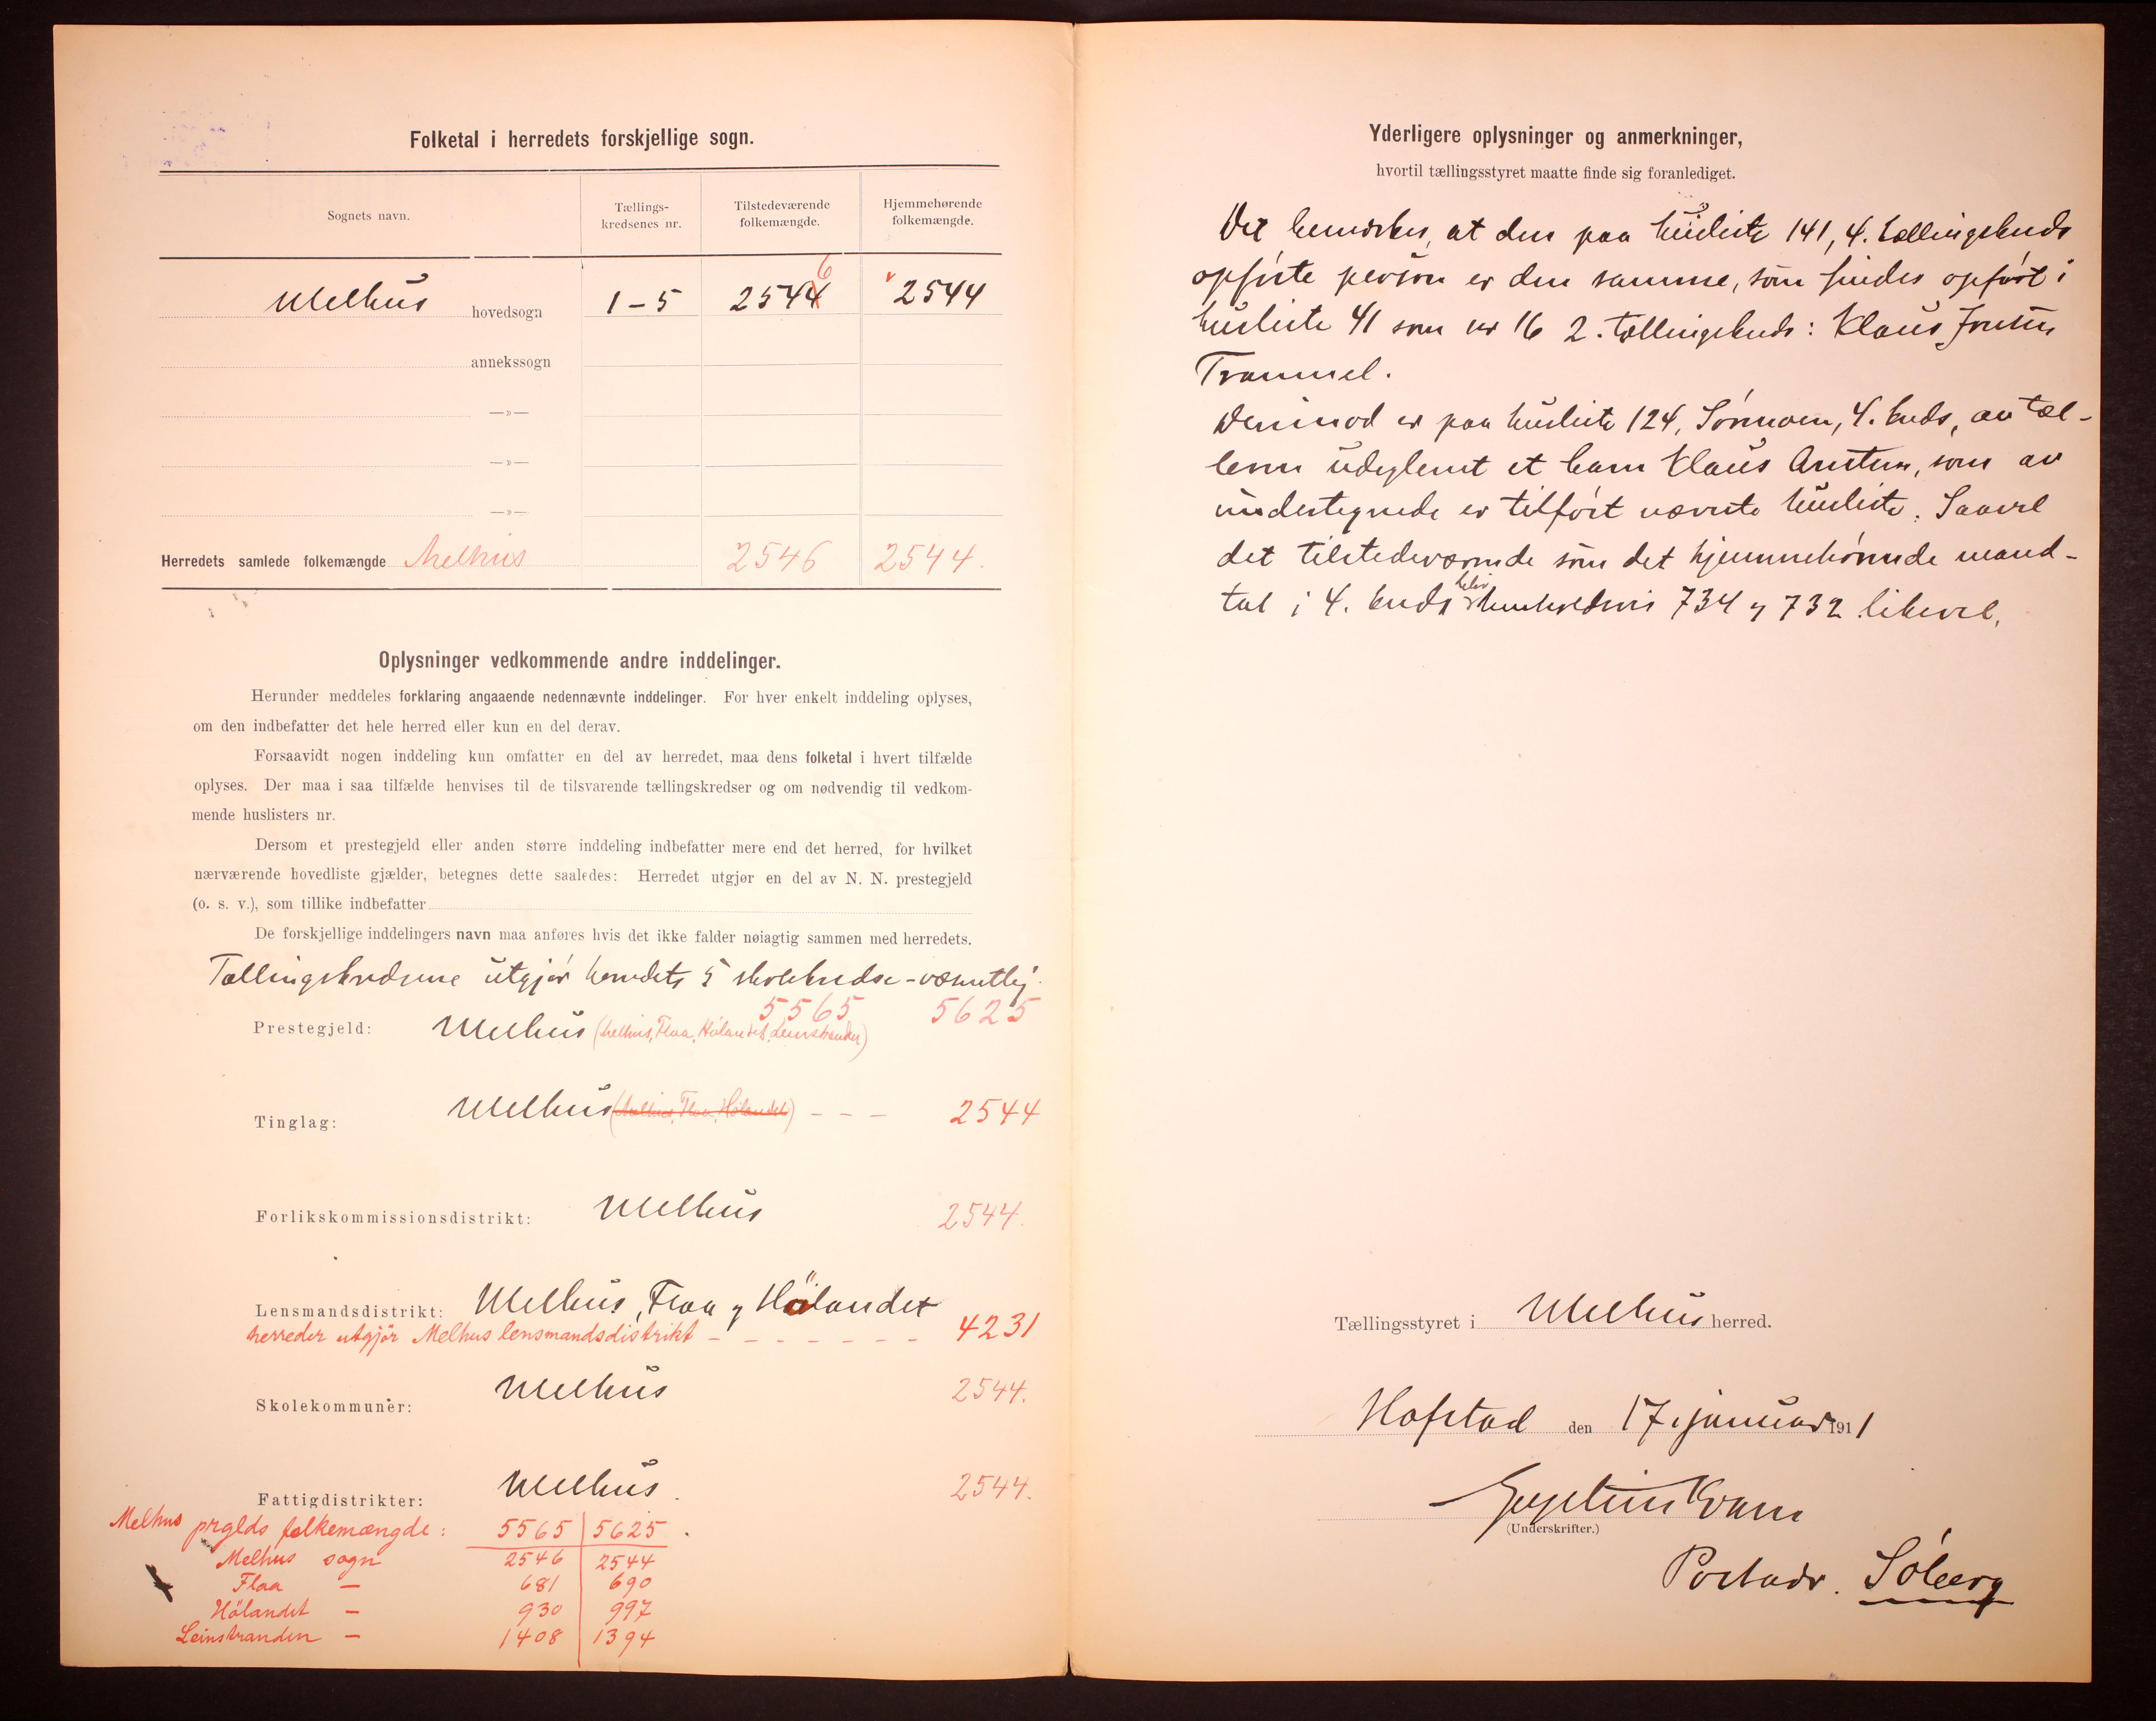 Folketal i herredets forskjellige sogn.
Sognets navn.
Tællings-
kredsenes nr.
Tilstedeværende
folkemængde.
Hjemmehørende
folkemængde.
6
Melhus hovedsogn 1-5 2544 2544
annekssogn
—»—
—»—
—»—
Herredets samlede folkemængde Melhus 2546 2544.
Oplysninger vedkommende andre inddelinger.
Herunder meddeles forklaring angaaende nedennævnte inddelinger. For hver enkelt inddeling oplyses,
om den indbefatter det hele herred eller kun en del derav.
Forsaavidt nogen inddeling kun omfatter en del av herredet, maa dens folketal i hvert tilfælde
oplyses. Der maa i saa tilfælde henvises til de tilsvarende tællingskredser og om nødvendig til vedkom-
mende huslisters nr.
Dersom et prestegjeld eller anden større inddeling indbefatter mere end det herred, for hvilket
nærværende hovedliste gjælder, betegnes dette saaledes: Herredet utgjør en del av N. N. prestegjeld
(o. s. v.), som tillike indbefatter
De forskjellige inddelingers navn maa anføres hvis det ikke falder nøiagtig sammen med herredets.
Tællingskredsene utgjør herredets 5 skolekredse - væsentlig.
5565 5625
Prestegjeld: Melhus (Melhus, Flaa, Hölandet, Leinstranden)
Tinglag: Melhus (Melhus, Flaa, Hölandet) - - - 2544
Forlikskommissionsdistrikt: Melhus 2544.
Lensmandsdistrikt: Melhus, Flaa og Hölandet
herreder utgjör Melhus lensmandsdistrikt - - - - - - - 4231
Skolekommuner: Melhus 2544.
Fattigdistrikter: Melhus. 2544.
Melhus prglds folkemængde: 5565 5625.
Melhus sogn 2546 2544
Flaa — 681 690
Hölandet — 930 997
Leinstranden — 1408 1394
Yderligere oplysninger og anmerkninger,
hvortil tællingsstyret maatte finde sig foranlediget.
Det bemærkes, at den paa husliste 141, 4. tællingskreds
opførte person er den samme, som findes opført i
husliste 41 som nr 16 2. tællingskreds: Klaus
Trammel.
Derimod er paa husliste 124, Sørmoen, 4. kreds, av tæl-
leren udeglemt et barn Klaus, som av
undertegnede er tilført nævnte husliste. Saavel
det tilstedeværende som det hjemmehørende mand-
tal i 4. kreds blir henholdsvis 734 og 732 likevel.
Tællingsstyret i Melhus herred.
Hofstad den 17. januar 1911
Kvam
(Underskrifter.)
Postadr. Söberg